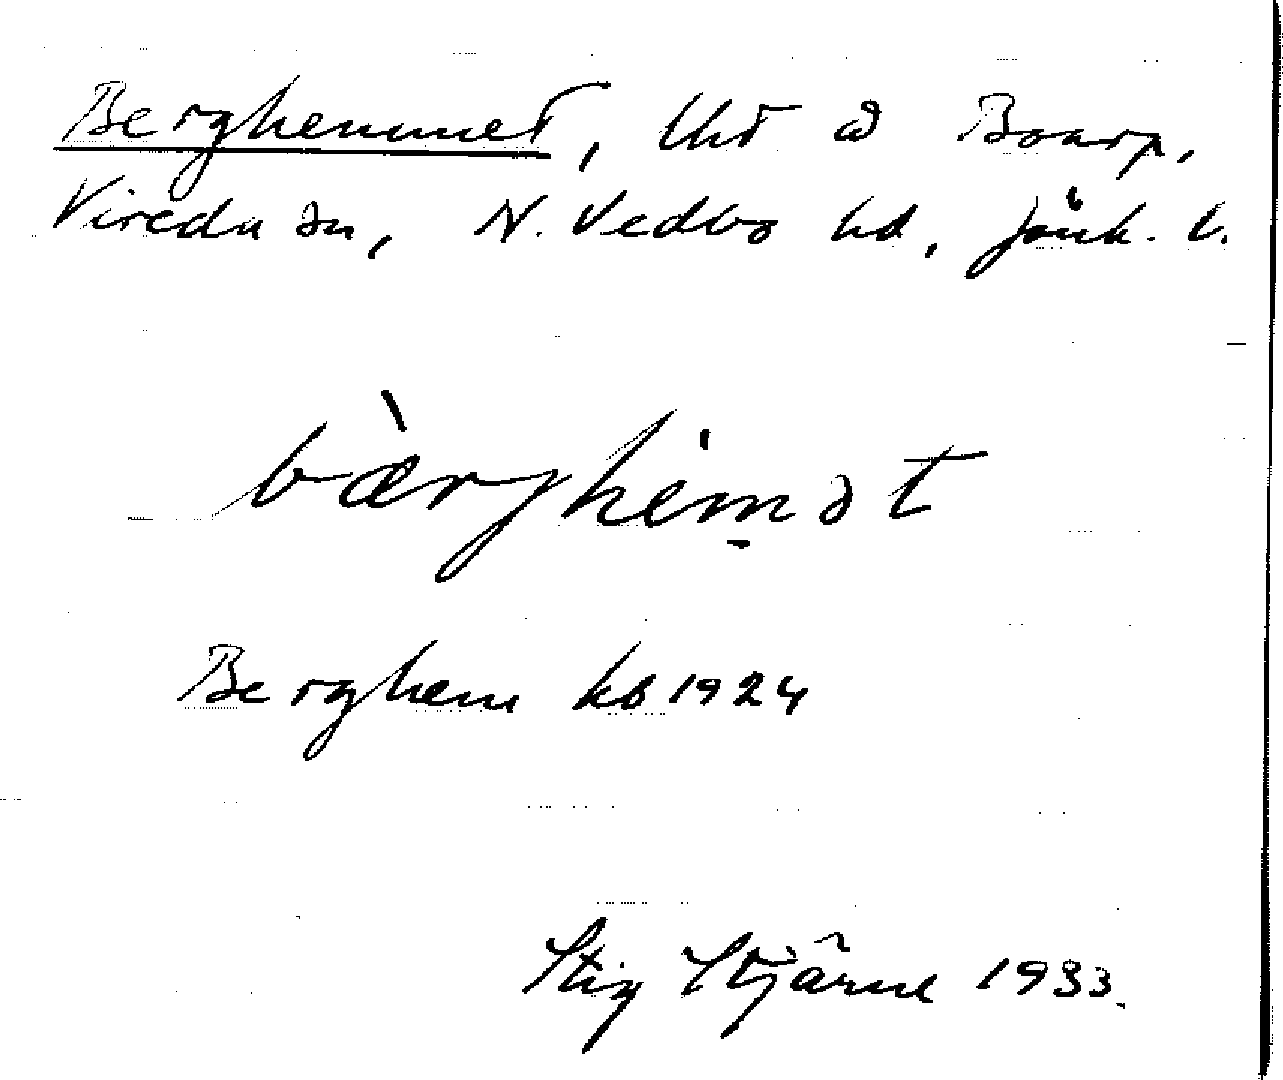 Berghemmet, lht å Boarp,
Vireda sn, N. Vedbo hd, Jönk. l.
bærghemət
Berghem kb 1924
Stig Stjärne 1933.